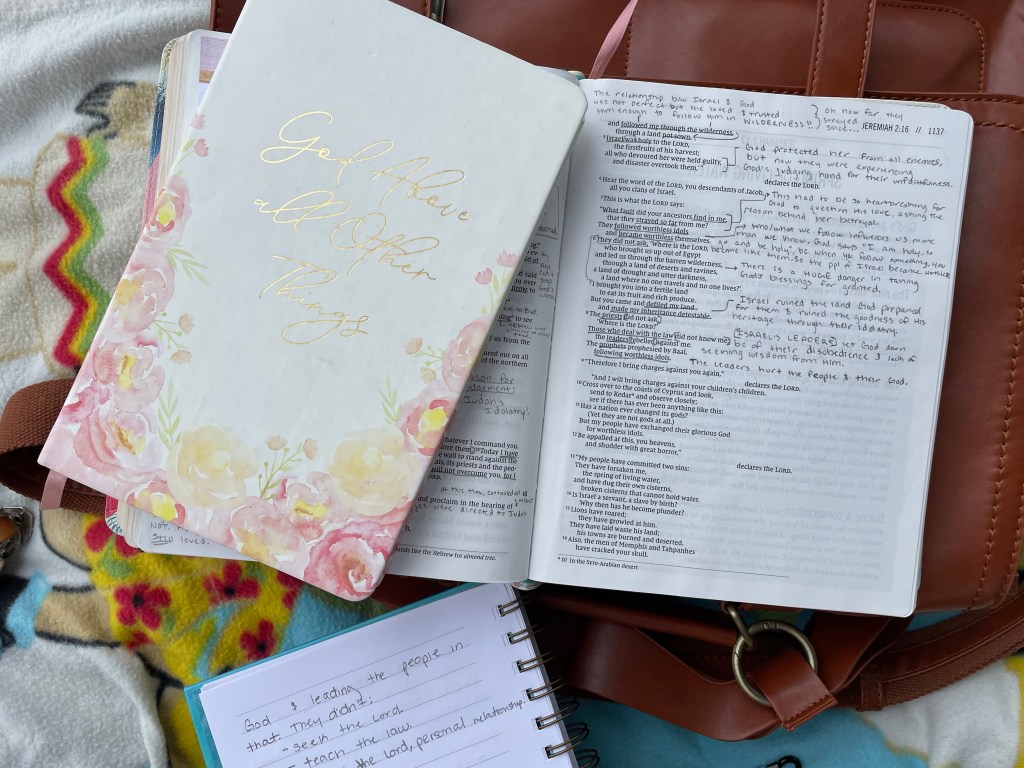 God Above
all Other
Things
The relationship b/w Israel & God
was not perfect but she loved & trusted
Him enough to follow Him in WILDERNESS!!
oh how far they
strayed
since...
JEREMIAH 2:16 // 1137
and followed me through the wilderness,
through a land not sown.
³ Israel was holy to the LORD,
the firstfruits of his harvest;
all who devoured her were held guilty,
and disaster overtook them,’”
declares the LORD.
God protected her from all enemies,
but now they were experiencing
God's judging hand for their unfaithfulness.
⁴ Hear the word of the LORD, you descendants of Jacob,
all you clans of Israel.
⁵ This is what the LORD says:
“What fault did your ancestors find in me,
that they strayed so far from me?
They followed worthless idols
and became worthless themselves.
This had to be so heartbreaking for
God to question his love, asking the
reason behind her betrayal.
who/what we follow influences us more
than we know. God says "I am holy, so
go and be holy", bc when you follow something, you
become like them. So the ppl of Israel became worthless
⁶ They did not ask, ‘Where is the LORD,
who brought us up out of Egypt
and led us through the barren wilderness,
through a land of deserts and ravines,
a land of drought and utter darkness,
a land where no one travels and no one lives?’
There is a HUGE danger in taking
God's blessings for granted.
⁷ I brought you into a fertile land
to eat its fruit and rich produce.
But you came and defiled my land
and made my inheritance detestable.
Israel ruined the land God prepared
for them & ruined the goodness of His
heritage through their idolatry.
⁸ The priests did not ask,
‘Where is the LORD?’
Those who deal with the law did not know me;
the leaders rebelled against me.
The prophets prophesied by Baal,
following worthless idols.
ISRAELIS LEADERS let God down
bc of their disobedience & lack of
seeking wisdom from Him.
The leaders hurt the people & their God.
⁹ “Therefore I bring charges against you again,”
declares the LORD.
“And I will bring charges against your children’s children.
¹⁰ Cross over to the coasts of Cyprus and look,
send to Kedar* and observe closely;
see if there has ever been anything like this:
¹¹ Has a nation ever changed its gods?
(Yet they are not gods at all.)
But my people have exchanged their glorious God
for worthless idols.
¹² Be appalled at this, you heavens,
and shudder with great horror,”
declares the LORD.
¹³ “My people have committed two sins:
They have forsaken me,
the spring of living water,
and have dug their own cisterns,
broken cisterns that cannot hold water.
¹⁴ Is Israel a servant, a slave by birth?
Why then has he become plunder?
¹⁵ Lions have roared;
they have growled at him.
They have laid waste his land;
his towns are burned and deserted.
¹⁶ Also, the men of Memphis and Tahpanhes
have cracked your skull.
* 10 In the Syro-Arabian desert
to see
us from the
ured out on all
of the northern
Judah's
Idolatry!
hatever I command you.
Today I have
e wall to stand against the
als, its priests and the peo-
will not overcome you, for I
and proclaim in the hearing of
were directed to Judah
ounds like the Hebrew for almond tree.
NOT.
STILL loves.
God & leading the people in
that. They didn't:
- seek the Lord
- teach the law.
the Lord, personal relationship.